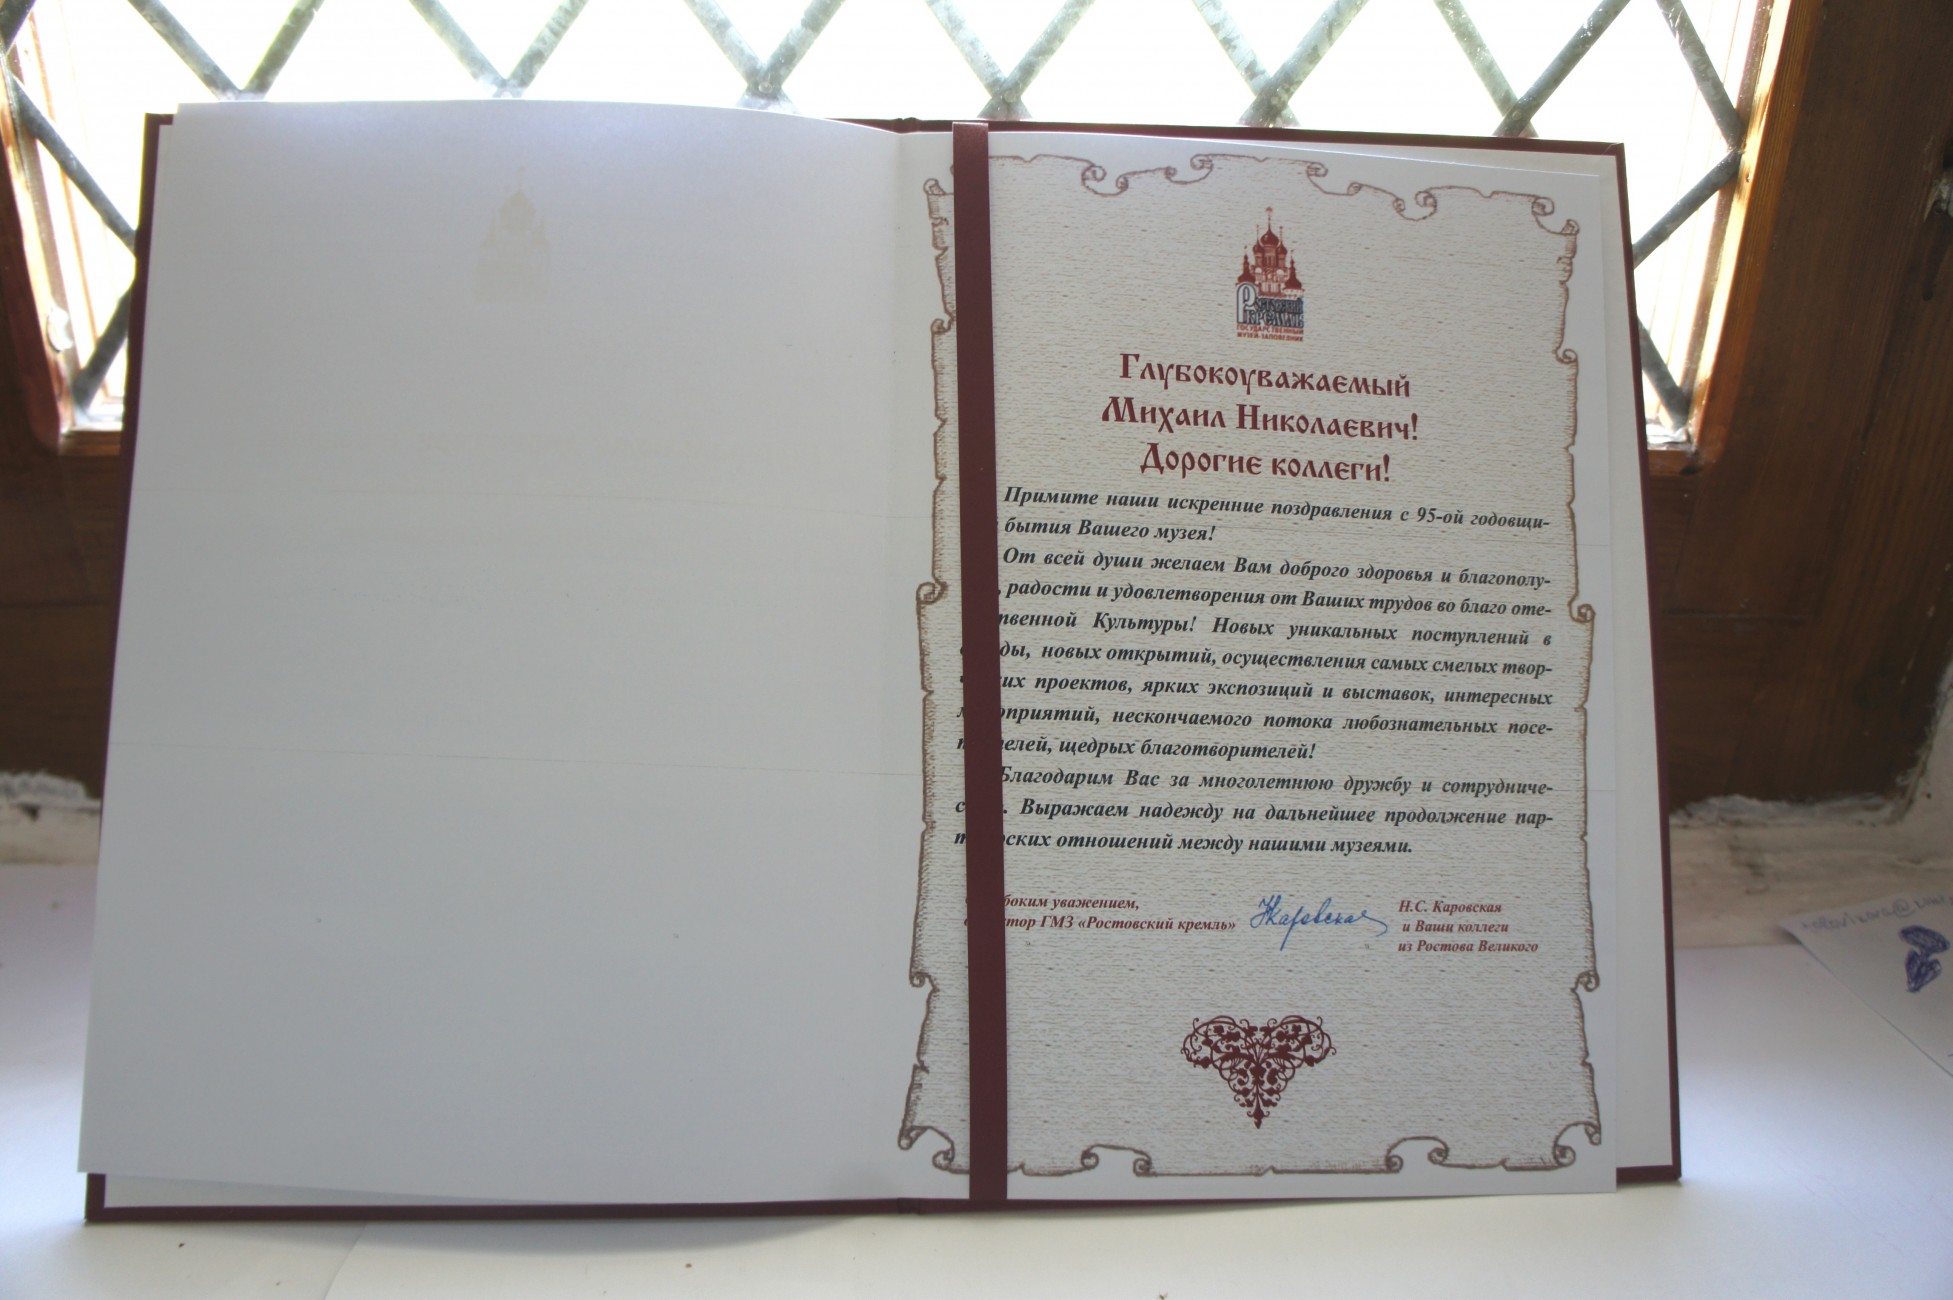 Ростовский
кремль
ГОСУДАРСТВЕННЫЙ
МУЗЕЙ-ЗАПОВЕДНИК
Глубокоуважаемый
Михаил Николаевич!
Дорогие коллеги!
Примите наши искренние поздравления с 95-ой годовщи-
бытия Вашего музея!
От всей души желаем Вам доброго здоровья и благополу-
, радости и удовлетворения от Ваших трудов во благо оте-
твенной Культуры! Новых уникальных поступлений в
ды, новых открытий, осуществления самых смелых твор-
их проектов, ярких экспозиций и выставок, интересных
оприятий, нескончаемого потока любознательных посе-
елей, щедрых благотворителей!
Благодарим Вас за многолетнюю дружбу и сотрудниче-
с . Выражаем надежду на дальнейшее продолжение пар-
рских отношений между нашими музеями.
боким уважением,
ктор ГМЗ «Ростовский кремль» Нкаровская Н.С. Каровская
и Ваши коллеги
из Ростова Великого